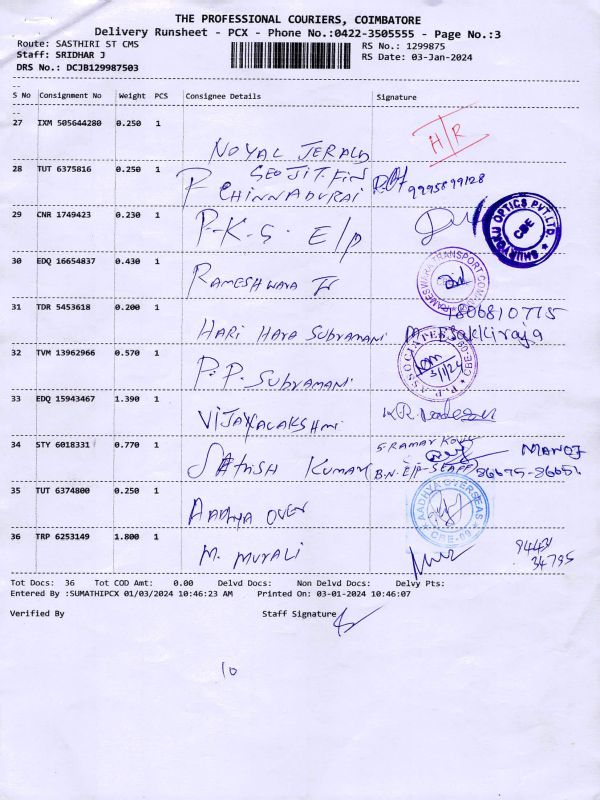 THE PROFESSIONAL COURIERS, COIMBATORE
Delivery Runsheet - PCX - Phone No.:0422-3505555 - Page No.:3
Route: SASTHIRI ST CMS
RS No.: 1299875
Staff: SRIDHAR J
RS Date: 03-Jan-2024
DRS No.: DCJB129987503
S No Consignment No Weight PCS Consignee Details Signature
27 IXM 505644280 0.250 1
H/R
NOYAL JERALD
28 TUT 6375816 0.250 1
GEOJIT. FIN
P CHINNADURAI
9995899128
29 CNR 1749423 0.230 1
P.K.S. E/P
SHURYOKU OPTICS PVT.LTD. CBE
30 EDQ 16654837 0.430 1
RAMESHWARA TR
RAMESWARA TRANSPORT COMPANY
31 TDR 5453618 0.200 1
1806810775
HARI HARA SUBRAMANI M. Esakkiraja
32 TVM 13962966 0.570 1
P.P. SUBRAMANI
P.P. ASSOCIATES CBE-09
3/1/24
33 EDQ 15943467 1.390 1
VIJAYALAKSHMI
34 STY 6018331 0.770 1
S. RAMAR KOVIL
MANOJ
SATHISH KUMAR B.N. E/P-STAFF 86675-86651
35 TUT 6374800 0.250 1
AADHYA OVER
AADHYA OVERSEAS CBE-09
36 TRP 6253149 1.800 1
M. MURALI
94431
34795
Tot Docs: 36 Tot COD Amt: 0.00 Delvd Docs: Non Delvd Docs: Delvy Pts:
Entered By :SUMATHIPCX 01/03/2024 10:46:23 AM Printed On: 03-01-2024 10:46:07
Verified By Staff Signature
10